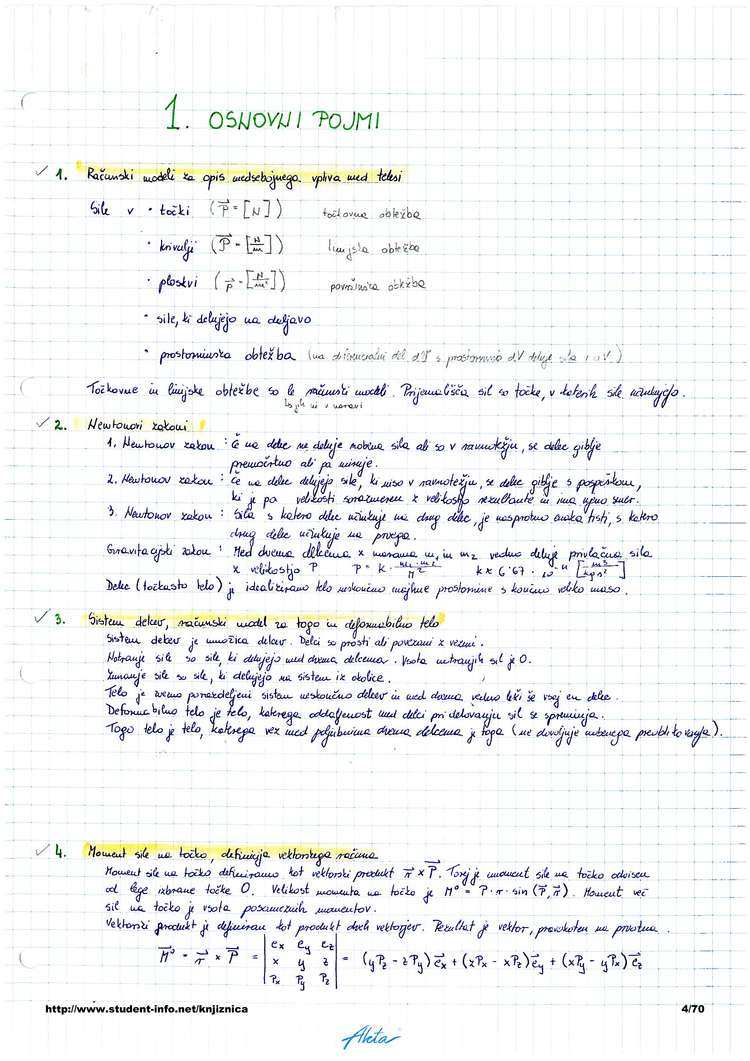 1. OSNOVNI POJMI
1. Računski modeli za opis medsebojnega vpliva med telesi
Sile v • točki (P = [N]) točkovna obtežba
• krivulji (P = [N/m]) linijska obtežba
• ploskvi (p = [N/m²]) površinska obtežba
• sile, ki delujejo na daljavo
• prostorninska obtežba (na diferencialni del dV s prostornino dV deluje sila
Točkovne in linijske obtežbe so le računski modeli. Prijemališča sil so točke, v katerih sile učinkujejo.
ki jih ni v naravi
2. Newtonovi zakoni
1. Newtonov zakon : če na delec ne deluje nobena sila ali so v ravnotežju, se delec giblje
premočrtno ali pa miruje.
2. Newtonov zakon : če na delec delujejo sile, ki niso v ravnotežju, se delec giblje s pospeškom,
ki je po velikosti sorazmeren z velikostjo rezultante in ima njeno smer.
3. Newtonov zakon : Sila s katero delec učinkuje na drug delec, je nasprotno enaka tisti, s katero
drug delec učinkuje na prvega.
Gravitacijski zakon : Med dvema delcema z masama m₁ in m₂ vedno deluje privlačna sila
z velikostjo P P = K · m₁·m₂/r² K ≈ 6'67 · 10⁻¹¹ [m³/kg s²]
Delec (točkasto telo) je idealizirano telo neskončno majhne prostornine s končno veliko maso.
3. Sistem delcev, računski model za togo in deformabilno telo
Sistem delcev je množica delcev. Delci so prosti ali povezani z vezmi.
Notranje sile so sile, ki delujejo med dvema delcema. Vsota notranjih sil je 0.
Zunanje sile so sile, ki delujejo na sistem iz okolice.
Telo je zvezno porazdeljeni sistem neskončno delcev in med dvema vedno leži še vsaj en delec.
Deformabilno telo je telo, katerega oddaljenost med delci pri delovanju sil se spreminja.
Togo telo je telo, katerega vez med poljubnima dvema delcema je toga (ne dovoljuje nobenega približevanja).
4. Moment sile na točko, definicija vektorskega računa
Moment sile na točko definiramo kot vektorski produkt r × P. Torej je moment sile na točko odvisen
od lege izbrane točke O. Velikost momenta na točko je M⁰ = P · r · sin (P, r). Moment več
sil na točko je vsota posameznih momentov.
Vektorski produkt je definiran kot produkt dveh vektorjev. Rezultat je vektor, pravokoten na prvotna.
M⁰ = r × P = | eₓ e_y e_z ; x y z ; Pₓ P_y P_z | = (yP_z - zP_y) eₓ + (zPₓ - xP_z) e_y + (xP_y - yPₓ) e_z
http://www.student-info.net/knjiznica 4/70